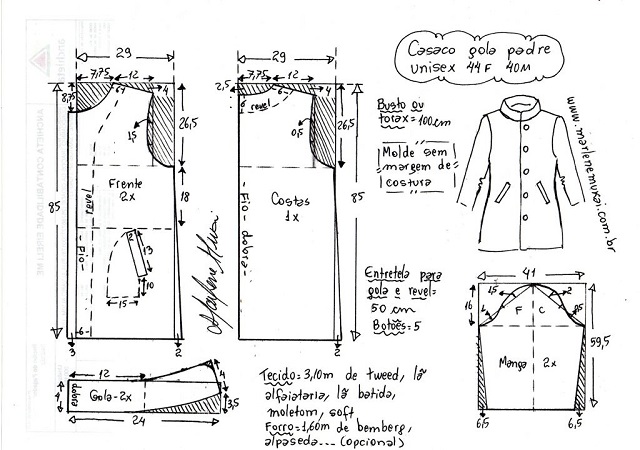 29
7,75
12
4
6
8,75
1,5
26,5
Frente
2x
18
revel
-Fio-
85
2
13
10
15
6
3
2
29
2,5
7,75
12
4
6
6 revel
0,5
26,5
Costas
1x
-Fio-dobra-
85
2
Marlene Mukai
Casaco gola padre
unisex 44F 40M
Busto ou
torax=100cm
Molde sem
margem de
costura
www.marlenemukai.com.br
Entretela para
gola e revel=
50 cm
Botões=5
41
16
1,5
2
F
C
Manga 2x
59,5
6,5
6,5
12
4
dobra
Gola-2x
4
3,5
24
Tecido=3,10m de tweed, lã
alfaiataria, lã batida,
moletom, soft
Forro=1,60m de bemberg,
alpaseda... (opcional)